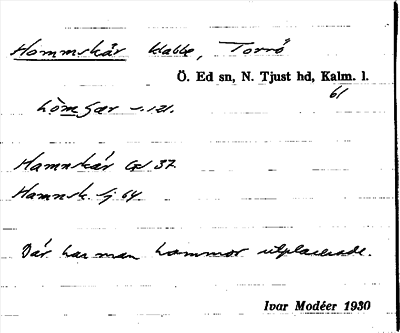 Hommskär klabbe, Torrö
Ö. Ed sn, N. Tjust hd, Kalm. l.
61
Hamnskär Gk 37
Hamnsk. Sj 64
Där har man hommor utplacerade.
Ivar Modéer 1930